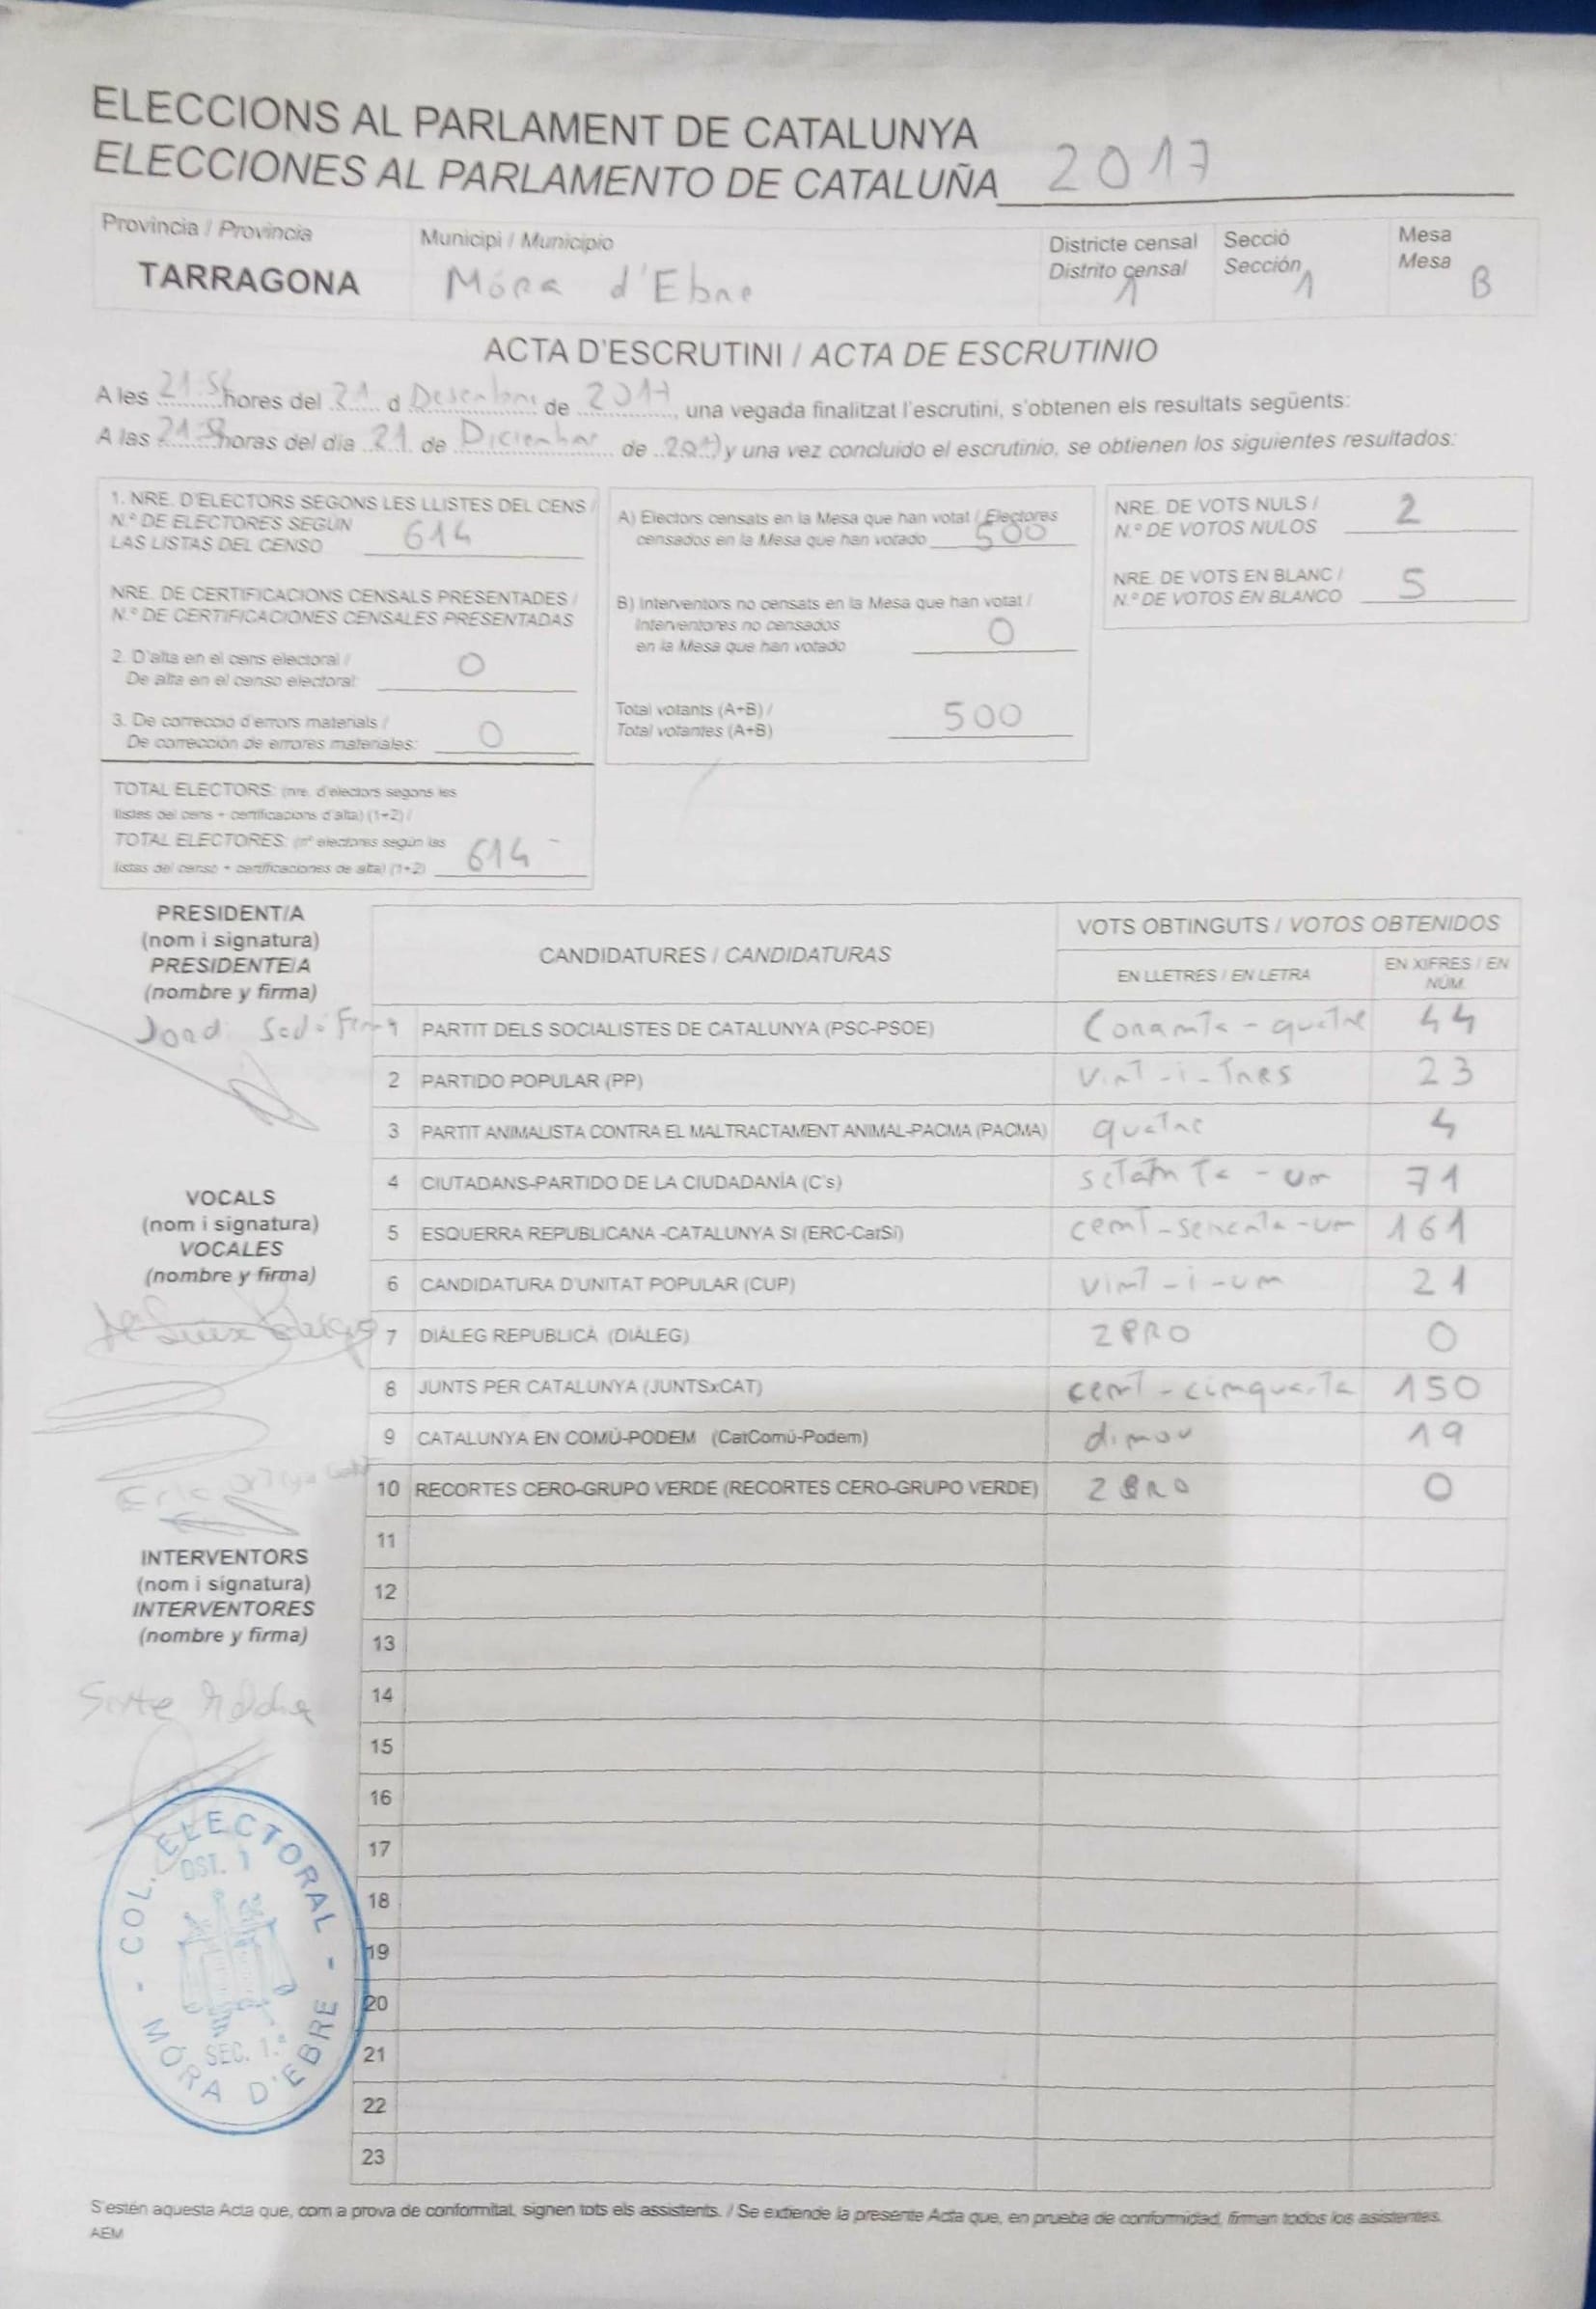 ELECCIONS AL PARLAMENT DE CATALUNYA
ELECCIONES AL PARLAMENTO DE CATALUÑA 2017
Provincia / Provincia Municipi / Municipio Districte censal Secció Mesa
Distrito censal Sección Mesa
TARRAGONA Móra d'Ebre 1 1 B
ACTA D'ESCRUTINI / ACTA DE ESCRUTINIO
A les hores del 21 d Desembre de 2017, una vegada finalitzat l'escrutini, s'obtenen els resultats següents:
A las horas del día 21 de Diciembre de 2017 y una vez concluido el escrutinio, se obtienen los siguientes resultados:
1. NRE. D'ELECTORS SEGONS LES LLISTES DEL CENS /
N.º DE ELECTORES SEGÚN
LAS LISTAS DEL CENSO 614
NRE. DE CERTIFICACIONS CENSALS PRESENTADES /
N.º DE CERTIFICACIONES CENSALES PRESENTADAS
2. D'alta en el cens electoral /
De alta en el censo electoral: 0
3. De correcció d'errors materials /
De corrección de errores materiales: 0
TOTAL ELECTORS: (nre. d'electors segons les
llistes del cens + certificacions d'alta) (1+2) /
TOTAL ELECTORES: (nº electores según las
listas del censo + certificaciones de alta) (1+2) 614
A) Electors censats en la Mesa que han votat / Electores
censados en la Mesa que han votado 500
B) Interventors no censats en la Mesa que han votat /
Interventores no censados
en la Mesa que han votado 0
Total votants (A+B) /
Total votantes (A+B) 500
NRE. DE VOTS NULS /
N.º DE VOTOS NULOS 2
NRE. DE VOTS EN BLANC /
N.º DE VOTOS EN BLANCO 5
PRESIDENT/A
(nom i signatura)
PRESIDENTE/A
(nombre y firma)
Jordi
VOCALS
(nom i signatura)
VOCALES
(nombre y firma)
Eric
INTERVENTORS
(nom i signatura)
INTERVENTORES
(nombre y firma)
COL. ELECTORAL - MÓRA D'EBRE -
DST. 1
SEC. 1.ª
CANDIDATURES / CANDIDATURAS VOTS OBTINGUTS / VOTOS OBTENIDOS
EN LLETRES / EN LETRA EN XIFRES / EN NÚM.
1 PARTIT DELS SOCIALISTES DE CATALUNYA (PSC-PSOE) Coranta-quatre 44
2 PARTIDO POPULAR (PP) vint-i-tres 23
3 PARTIT ANIMALISTA CONTRA EL MALTRACTAMENT ANIMAL-PACMA (PACMA) quatre 4
4 CIUTADANS-PARTIDO DE LA CIUDADANÍA (C's) setanta-un 71
5 ESQUERRA REPUBLICANA -CATALUNYA SI (ERC-CatSí) cent-seixanta-un 161
6 CANDIDATURA D'UNITAT POPULAR (CUP) vint-i-un 21
7 DIÀLEG REPUBLICÀ (DIÀLEG) ZERO 0
8 JUNTS PER CATALUNYA (JUNTSxCAT) cent-cinquanta 150
9 CATALUNYA EN COMÚ-PODEM (CatComú-Podem) dinou 19
10 RECORTES CERO-GRUPO VERDE (RECORTES CERO-GRUPO VERDE) ZERO 0
11
12
13
14
15
16
17
18
19
20
21
22
23
S'estén aquesta Acta que, com a prova de conformitat, signen tots els assistents. / Se extiende la presente Acta que, en prueba de conformidad, firman todos los asistentes.
AEM